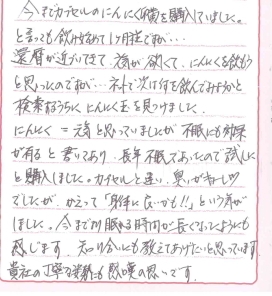 今までカプセルのにんにく卵黄を購入していました。
と言っても飲み始めて1ヶ月程ですが…
還暦が近づいてきて元気が欲しくて、にんにくを飲もう
と思ったのですが…ネットで次は何を飲んでみようかと
検索するうちに、にんにく玉を見つけました。
にんにく=元気と思っていましたが不眠にも効果
が有ると書いてあり、長年不眠であったので試しに
と購入しました。カプセルと違い、臭いがキョーレツ
でしたが、かえって「身体に良いかも!!」という気が
しました。今までより眠れる時間が長くなったようにも
感じます。知り合いにも教えてあげたいと思っています。
貴社の丁寧な